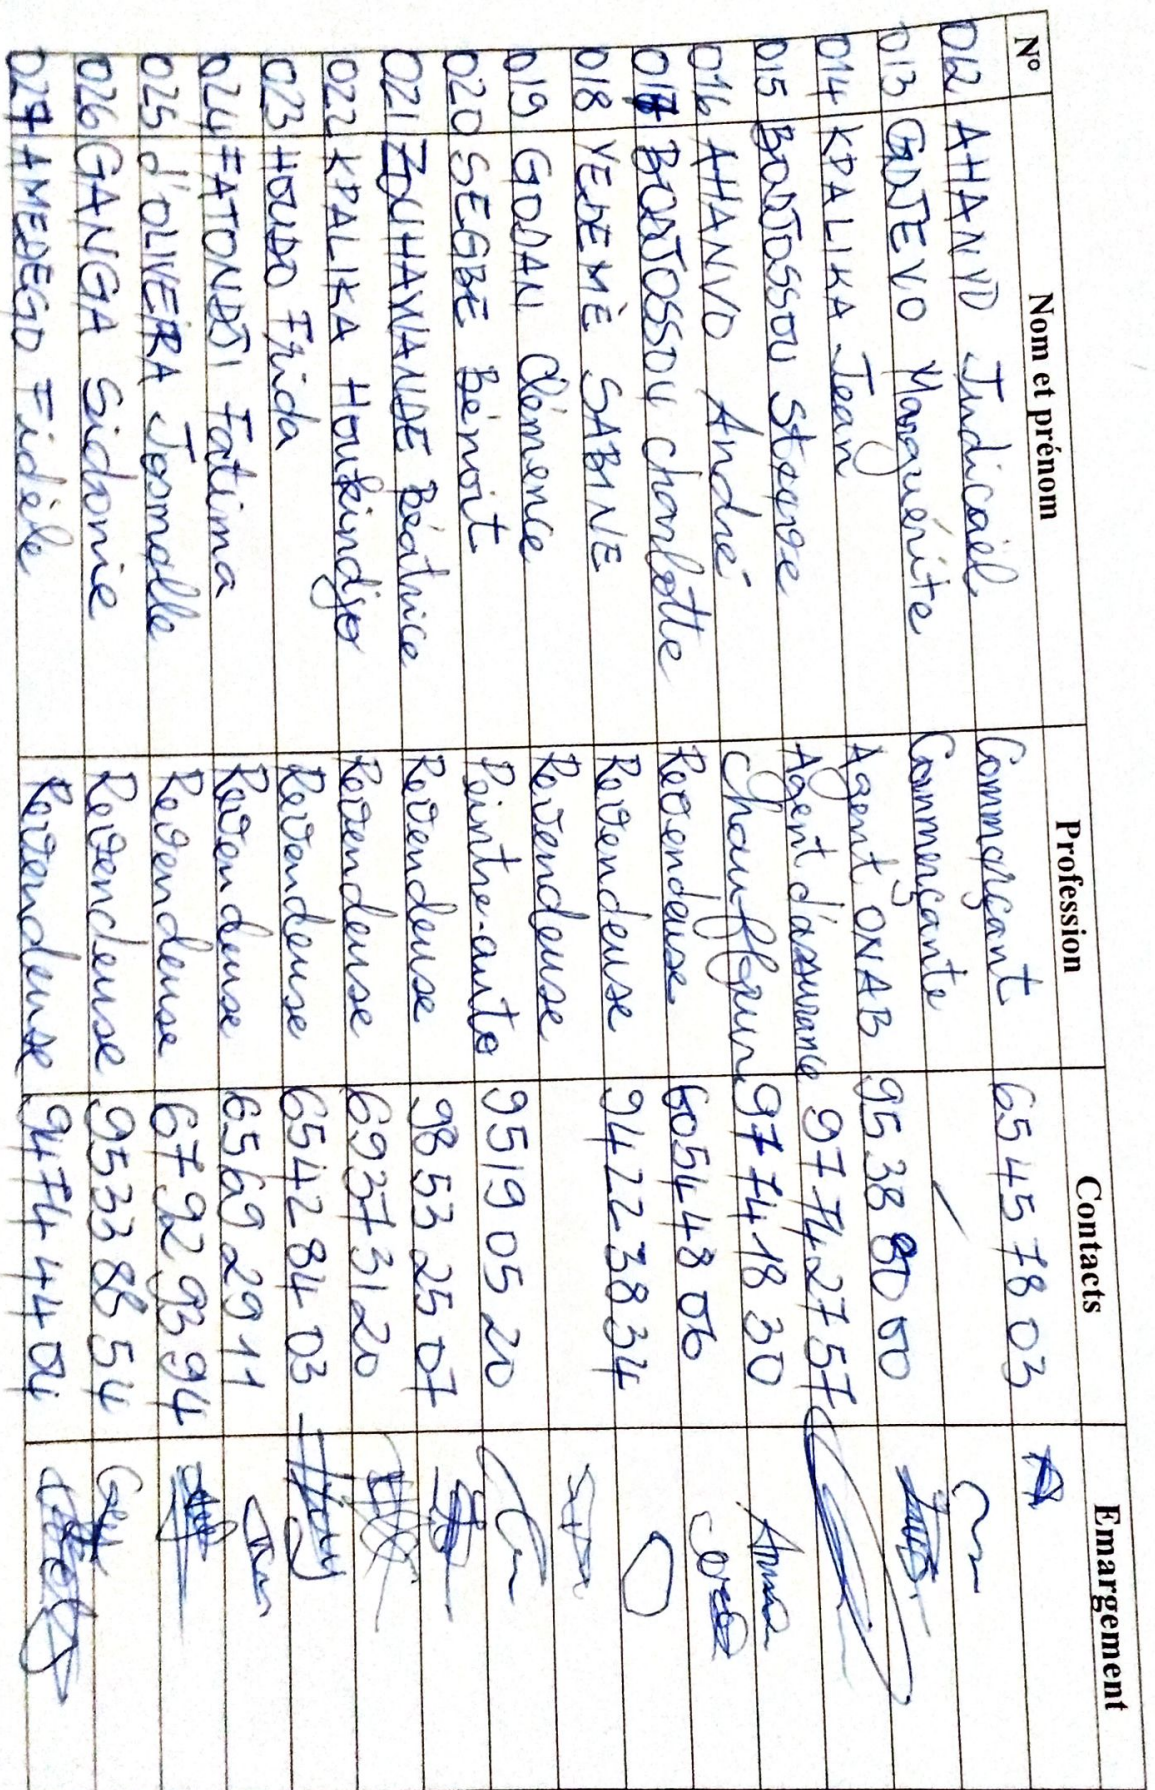 N° Nom et prénom Profession Contacts Emargement
012 AHANVO Judicaël Commerçant 65 45 78 03
013 GNTEVO Marguérite Commerçante /
014 KPALIKA Jean Agent ONAB 95 38 80 00
015 BONTOSSOU Steeve Agent d'assurance 97 74 27 57
016 AHANVO André Chauffeur 97 74 18 30
017 BONTOSSOU charlotte Revendeuse 60 54 48 06
018 YEDEMÈ SABINE Revendeuse 94 22 38 34
019 GODAN Clémence Revendeuse
020 SEGBE Bénoit Peintre-auto 95 19 05 20
021 ZOUHANNANDE Béatrice Revendeuse 98 53 25 07
022 KPALIKA Houkindjo Revendeuse 69 37 31 20
023 HOUDO Frida Revendeuse 65 42 84 03
024 FATONDJI Fatima Revendeuse 65 69 29 11
025 d'OLIVEIRA Jesmelle Revendeuse 67 92 93 94
026 GANGA Sidonie Revendeuse 95 33 86 54
027 AMEDEGO Fidèle Revendeuse 94 74 44 04